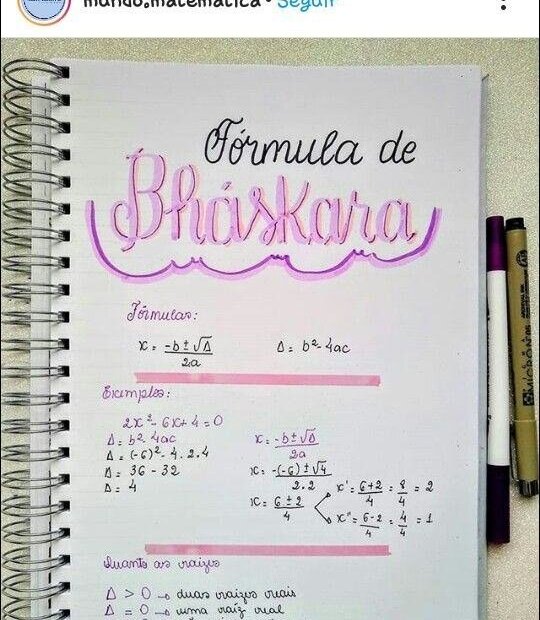 mundo.matematica • Seguir
Fórmula de
Bháskara
Fórmulas:
x = -b ± √Δ / 2a    Δ = b² - 4ac
Exemplos:
2x² - 6x + 4 = 0
Δ = b² - 4ac    x = -b ± √Δ / 2a
Δ = (-6)² - 4 . 2 . 4    x = -(-6) ± √4 / 2.2
Δ = 36 - 32    x' = 6+2 / 4 = 8 / 4 = 2
Δ = 4    x = 6 ± 2 / 4
x'' = 6-2 / 4 = 4 / 4 = 1
Quanto as raízes
Δ > 0 → duas raízes reais
Δ = 0 → uma raíz real
MICRON